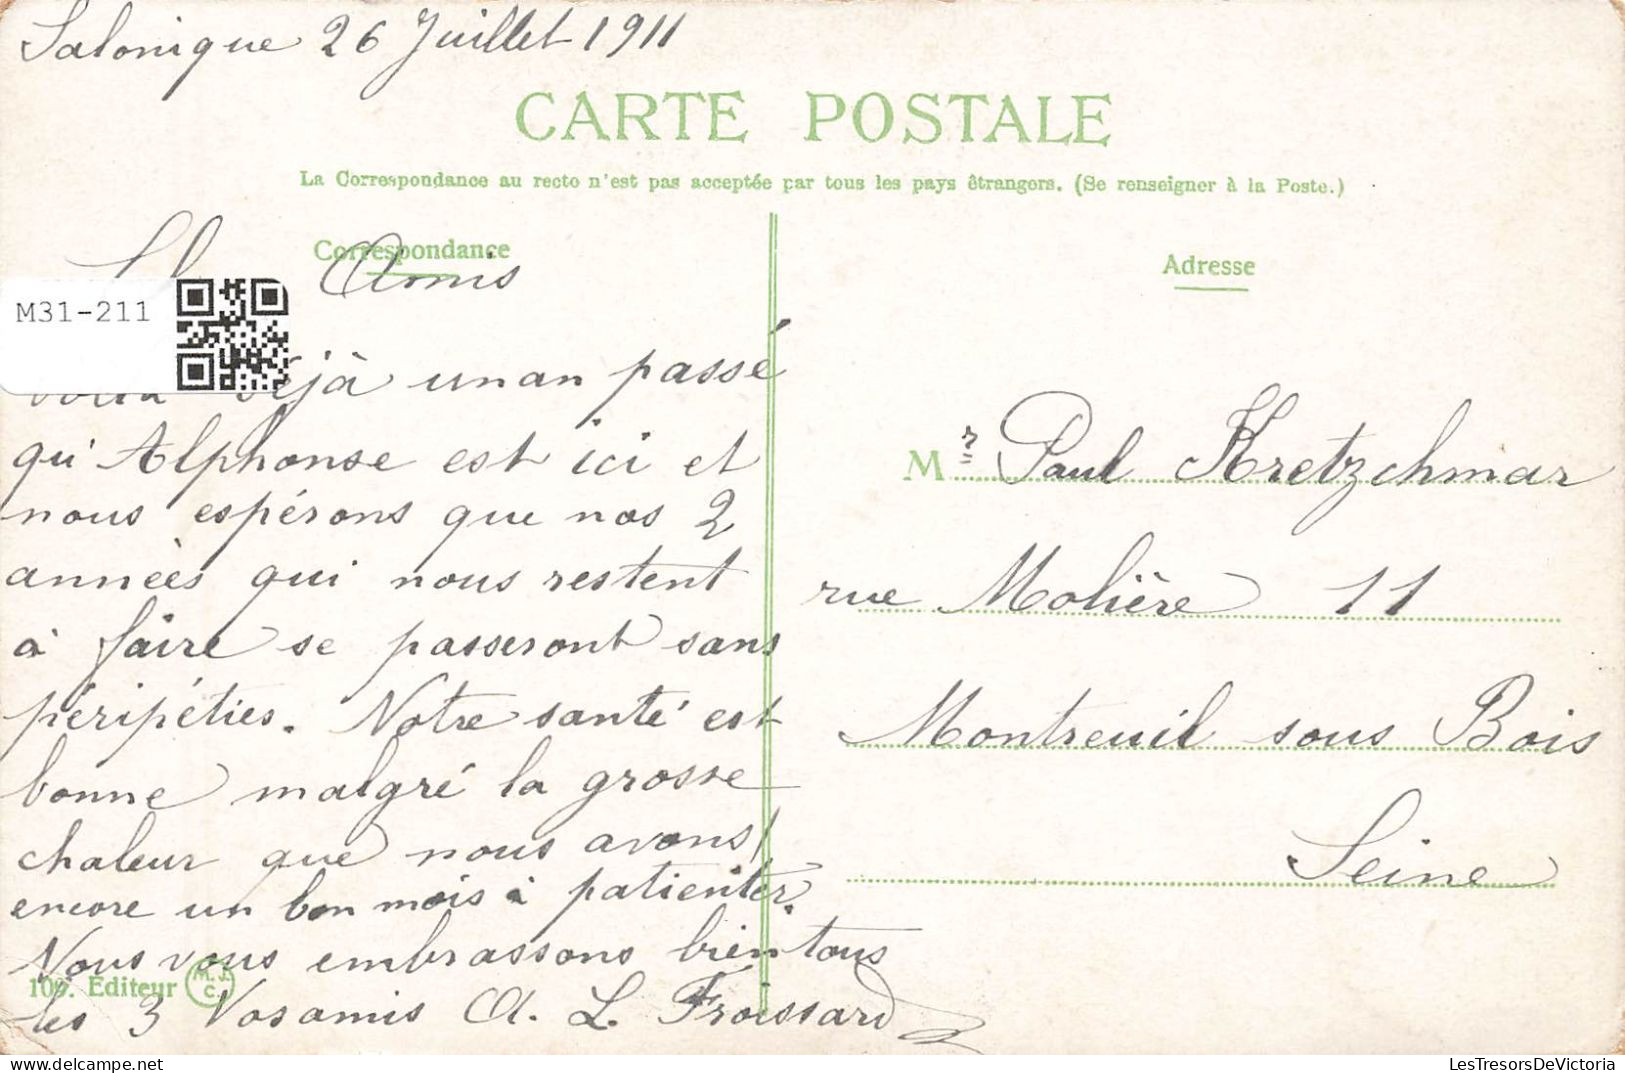 Salonique 26 Juillet 1911
CARTE POSTALE
La Correspondance au recto n'est pas acceptée par tous les pays étrangers. (Se renseigner à la Poste.)
Correspondance
Adresse
Amis
M31-211
déjà un an passé
qu'Alphonse est ici et
nous espérons que nos 2
années qui nous restent
à faire se passeront sans
péripéties. Notre santé est
bonne malgré la grosse
chaleur que nous avons/
encore un bon mois à patienter.
Nous vous embrassons bien tous
les 3 Vos amis A. L. Froissard
109. Editeur M. J. C.
Mr Paul Kretzchmar
rue Molière 11
Montreuil sous Bois
Seine
LesTresorsDeVictoria